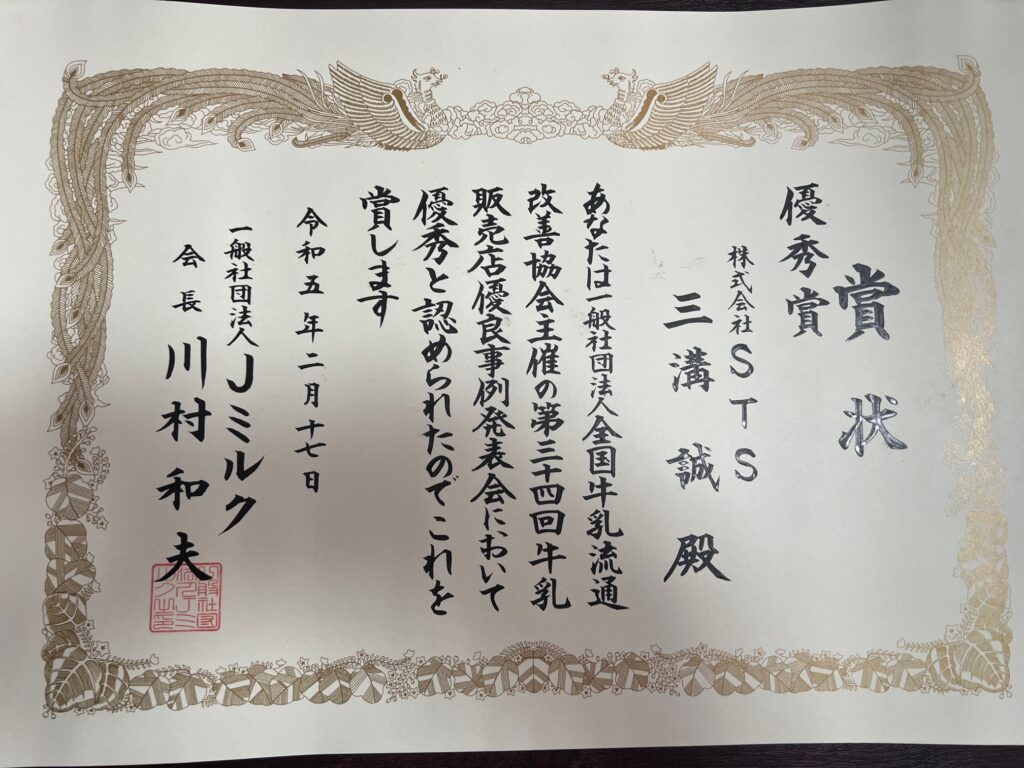 賞状
優秀賞
株式会社STS
三溝誠殿
あなたは一般社団法人全国牛乳流通
改善協会主催の第三十四回牛乳
販売店優良事例発表会において
優秀と認められたのでこれを
賞します
令和五年二月十七日
一般社団法人Jミルク
会長 川村和夫